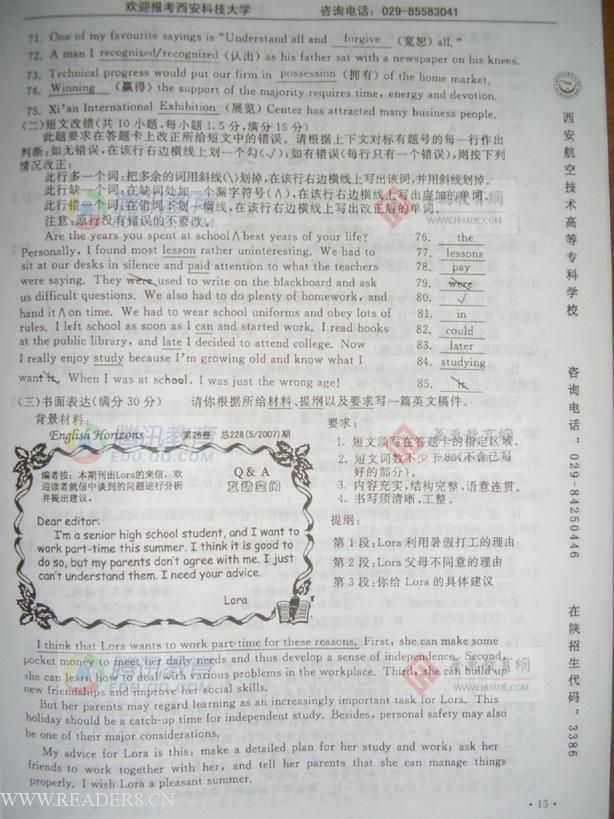 欢迎报考西安科技大学 咨询电话：029-85583041
71. One of my favourite sayings is "Understand all and forgive (宽恕) all."
72. A man I recognised/recognized (认出) as his father sat with a newspaper on his knees.
73. Technical progress would put our firm in possession (拥有) of the home market.
74. Winning (赢得) the support of the majority requires time, energy and devotion.
75. Xi'an International Exhibition (展览) Center has attracted many business people.
(二)短文改错(共 10 小题,每小题 1.5 分,满分 15 分)
此题要求在答题卡上改正所给短文中的错误。请根据上下文对标有题号的每一行作出
判断:如无错误,在该行右边横线上划一个勾(√);如有错误(每行只有一个错误),则按下列
情况改正:
此行多一个词:把多余的词用斜线(\)划掉,在该行右边横线上写出该词,并用斜线划掉。
此行缺一个词:在缺词处加一个漏字符号(∧),在该行右边横线上写出应加的单词。
此行错一个词:在错词下划一横线,在该行右边横线上写出改正后的单词。
注意:原行没有错误的不要改。
Are the years you spent at school∧best years of your life? 76. the
Personally, I found most lesson rather uninteresting. We had to 77. lessons
sit at our desks in silence and paid attention to what the teachers 78. pay
were saying. They were used to write on the blackboard and ask 79. were
us difficult questions. We also had to do plenty of homework, and 80. √
hand it∧on time. We had to wear school uniforms and obey lots of 81. in
rules. I left school as soon as I can and started work. I read books 82. could
at the public library, and late I decided to attend college. Now 83. later
I really enjoy study because I'm growing old and know what I 84. studying
want it. When I was at school, I was just the wrong age! 85. it
(三)书面表达(满分 30 分) 请你根据所给材料、提纲以及要求写一篇英文稿件。
背景材料:
English Horizons 第26卷 总228(5/2007)期
编者按：本期刊出Lora的来信，欢
迎读者就信中谈到的问题进行分析
并提出建议。
Q & A
互动空间
Dear editor:
I'm a senior high school student, and I want to
work part-time this summer. I think it is good to
do so, but my parents don't agree with me. I just
can't understand them. I need your advice.
Lora
要求:
1. 短文须写在答题卡的指定区域。
2. 短文词数不少于 80(不含已写
好的部分)。
3. 内容充实,结构完整,语意连贯。
4. 书写须清晰、工整。
提纲:
第 1 段:Lora 利用暑假打工的理由
第 2 段:Lora 父母不同意的理由
第 3 段:你给 Lora 的具体建议
I think that Lora wants to work part-time for these reasons. First, she can make some
pocket money to meet her daily needs and thus develop a sense of independence. Second,
she can learn how to deal with various problems in the workplace. Third, she can build up
new friendships and improve social skills.
But her parents may regard learning as an increasingly important task for Lora. This
holiday should be a catch-up time for independent study. Besides, personal safety may also
be one of their major considerations.
My advice for Lora is this: make a detailed plan for her study and work; ask her
friends to work together with her, and tell her parents that she can manage things
properly. I wish Lora a pleasant summer.
·15·
西安航空技术高等专科学校
咨询电话：029-84250446
在陕招生代码：3386
腾讯教育
EDU.QQ.COM
华禹教育网
WWW.HUAUE.COM
WWW.READER8.CN